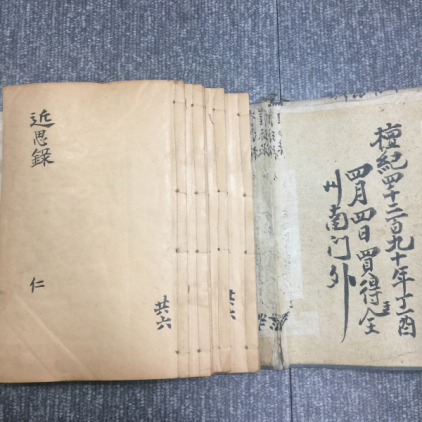 近思錄
仁
共六
共六
檀紀四千二百九十年丁酉
四月四日買得全
州南門外